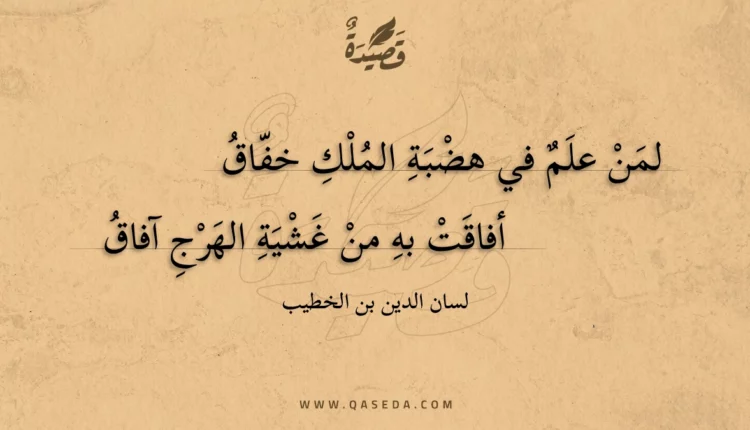 قَصِيْدَةٌ
لمَنْ علَمٌ في هضْبَةِ المُلْكِ خفّاقُ
أفاقَتْ بهِ منْ غَشْيَةِ الهَرْجِ آفاقُ
لسان الدين بن الخطيب
WWW.QASEDA.COM